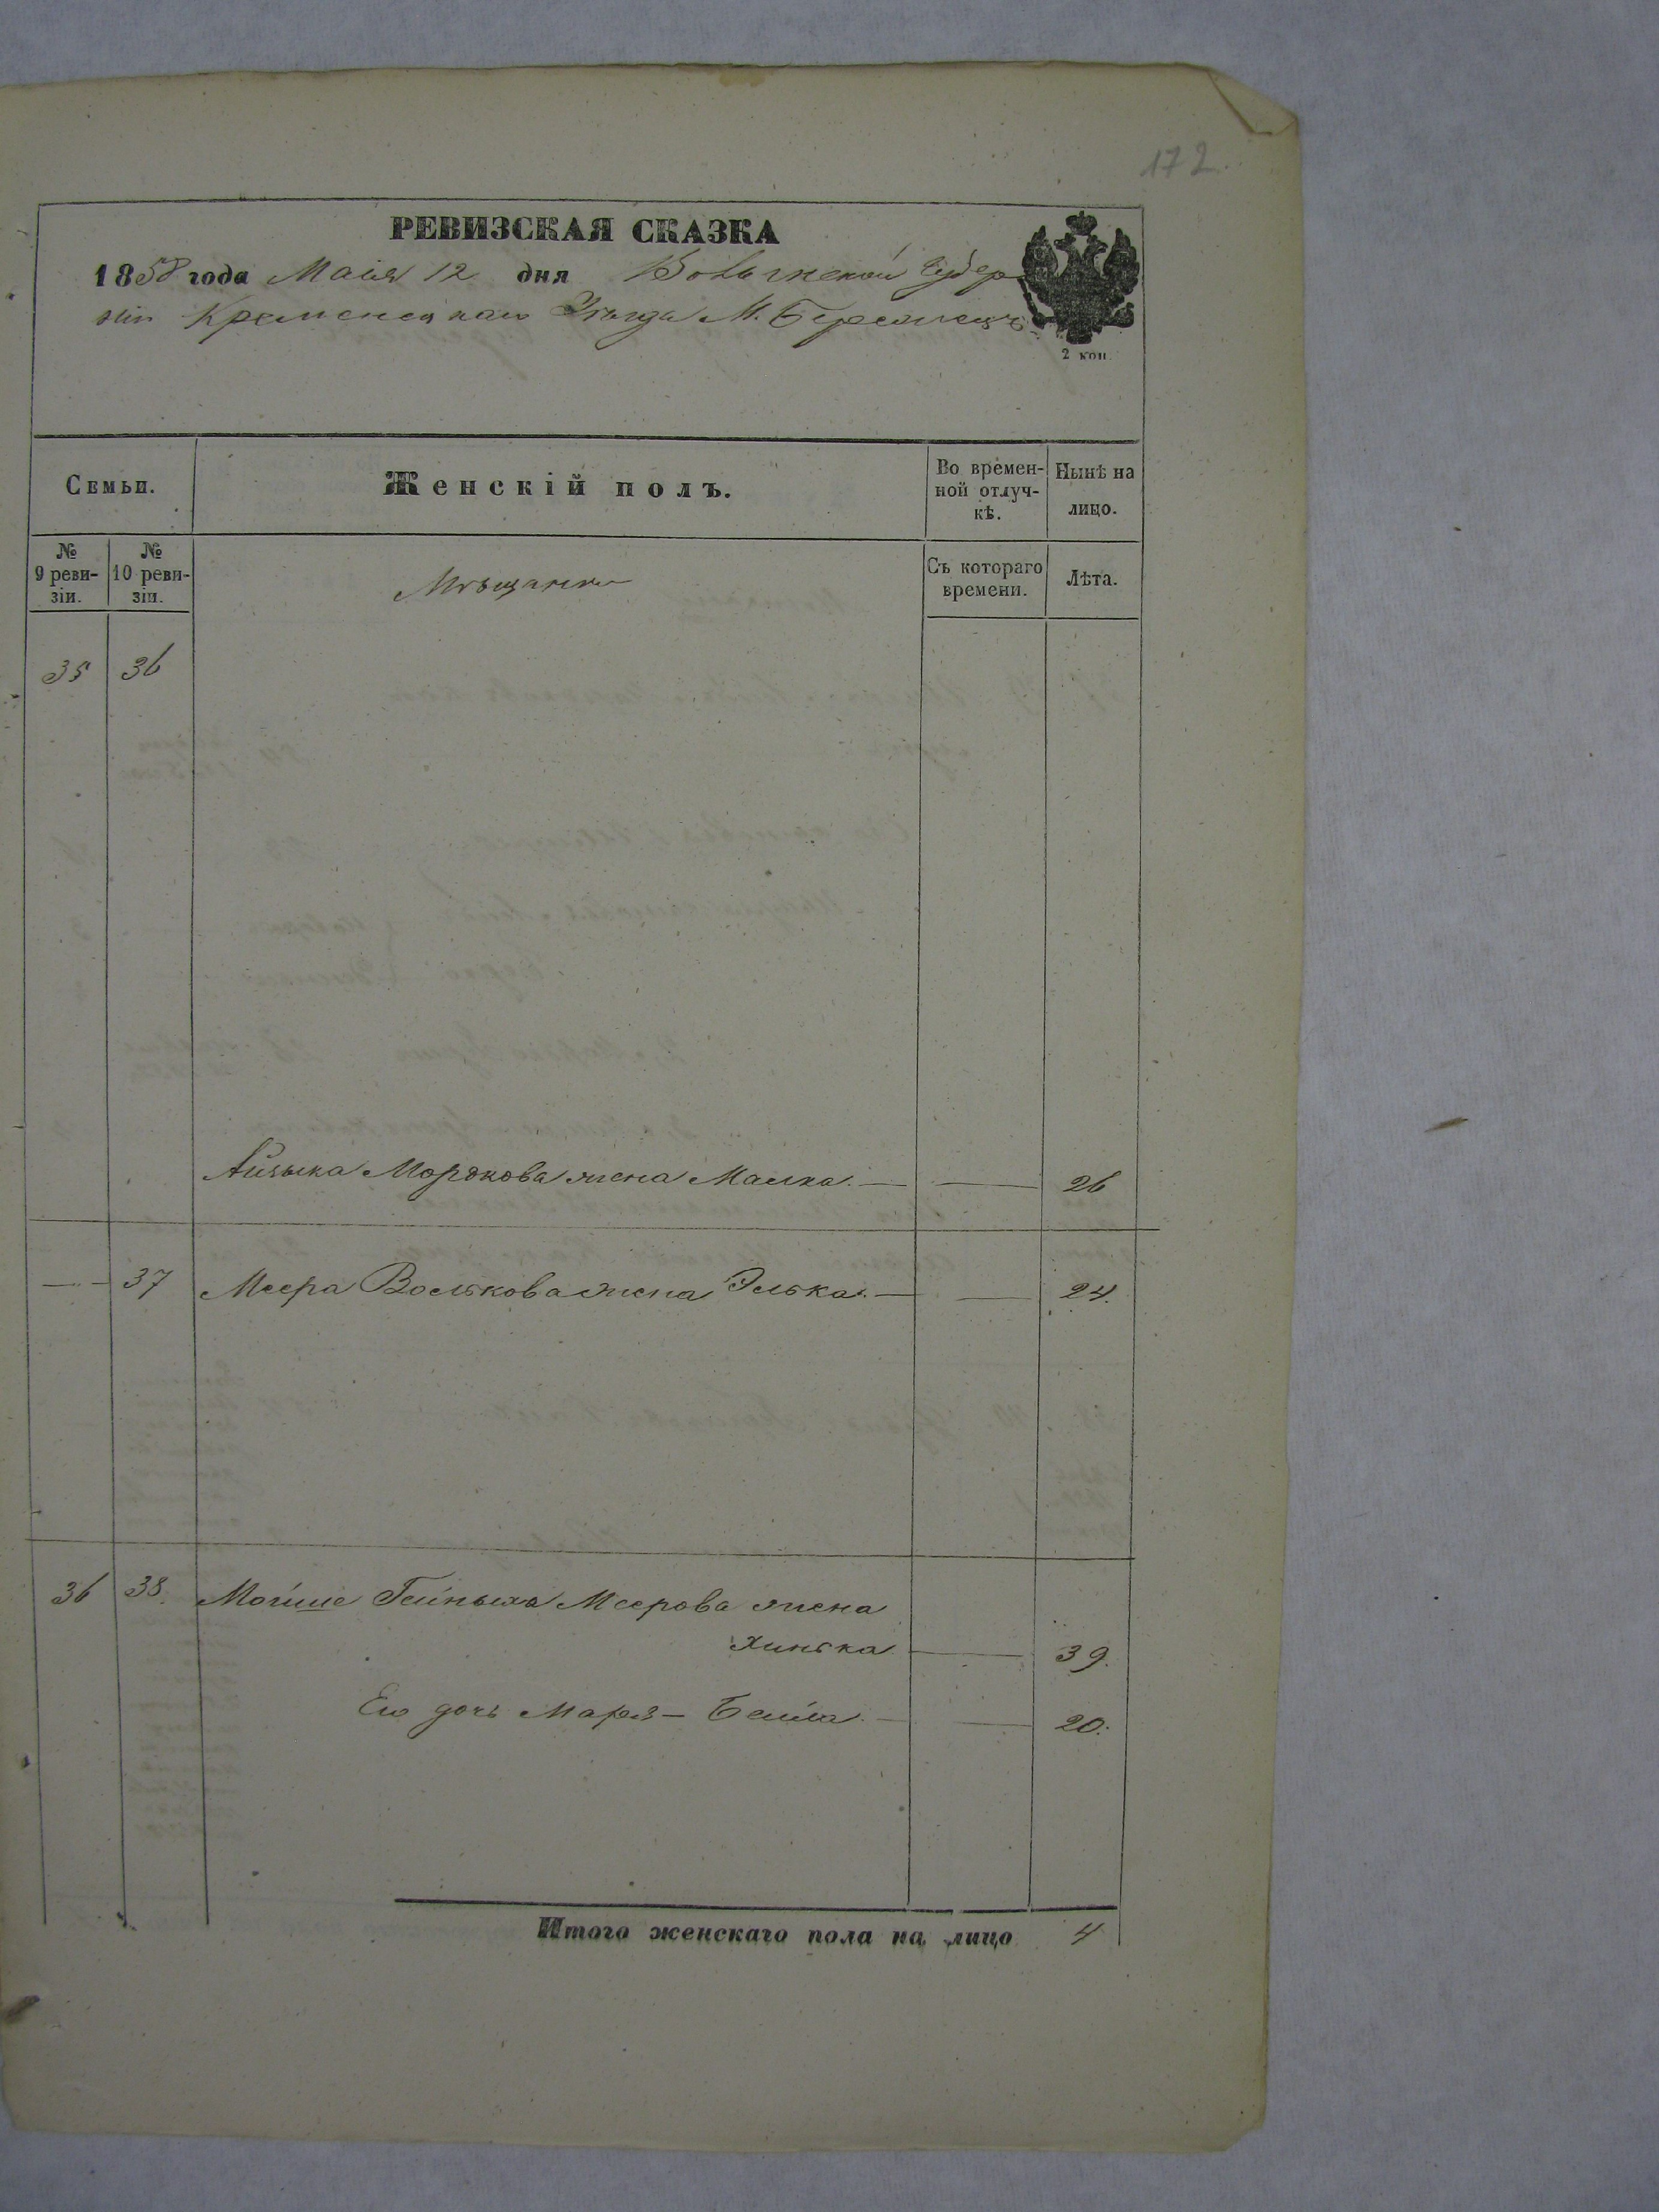 172.
РЕВИЗСКАЯ СКАЗКА
1858 года Маія 12 дня Волынской Губер
ніи Кременецкаго Уѣзда М. Бережецъ
2 коп.
Семьи.
Женскій полъ.
Во времен-
ной отлуч-
кѣ.
Нынѣ на
лицо.
№
9 реви-
зіи.
№
10 реви-
зіи.
Мѣщанки
Съ котораго
времени.
Лѣта.
35 36
Айзыка Мордкова жена Малка. — — 26
— 37 Меера Волькова жена Элька. — — 24.
36 38. Мойше Гейныха Меерова жена
Хинька — 39.
Его дочь Маря - Бейла. — — 20.
Итого женскаго пола на лицо 4